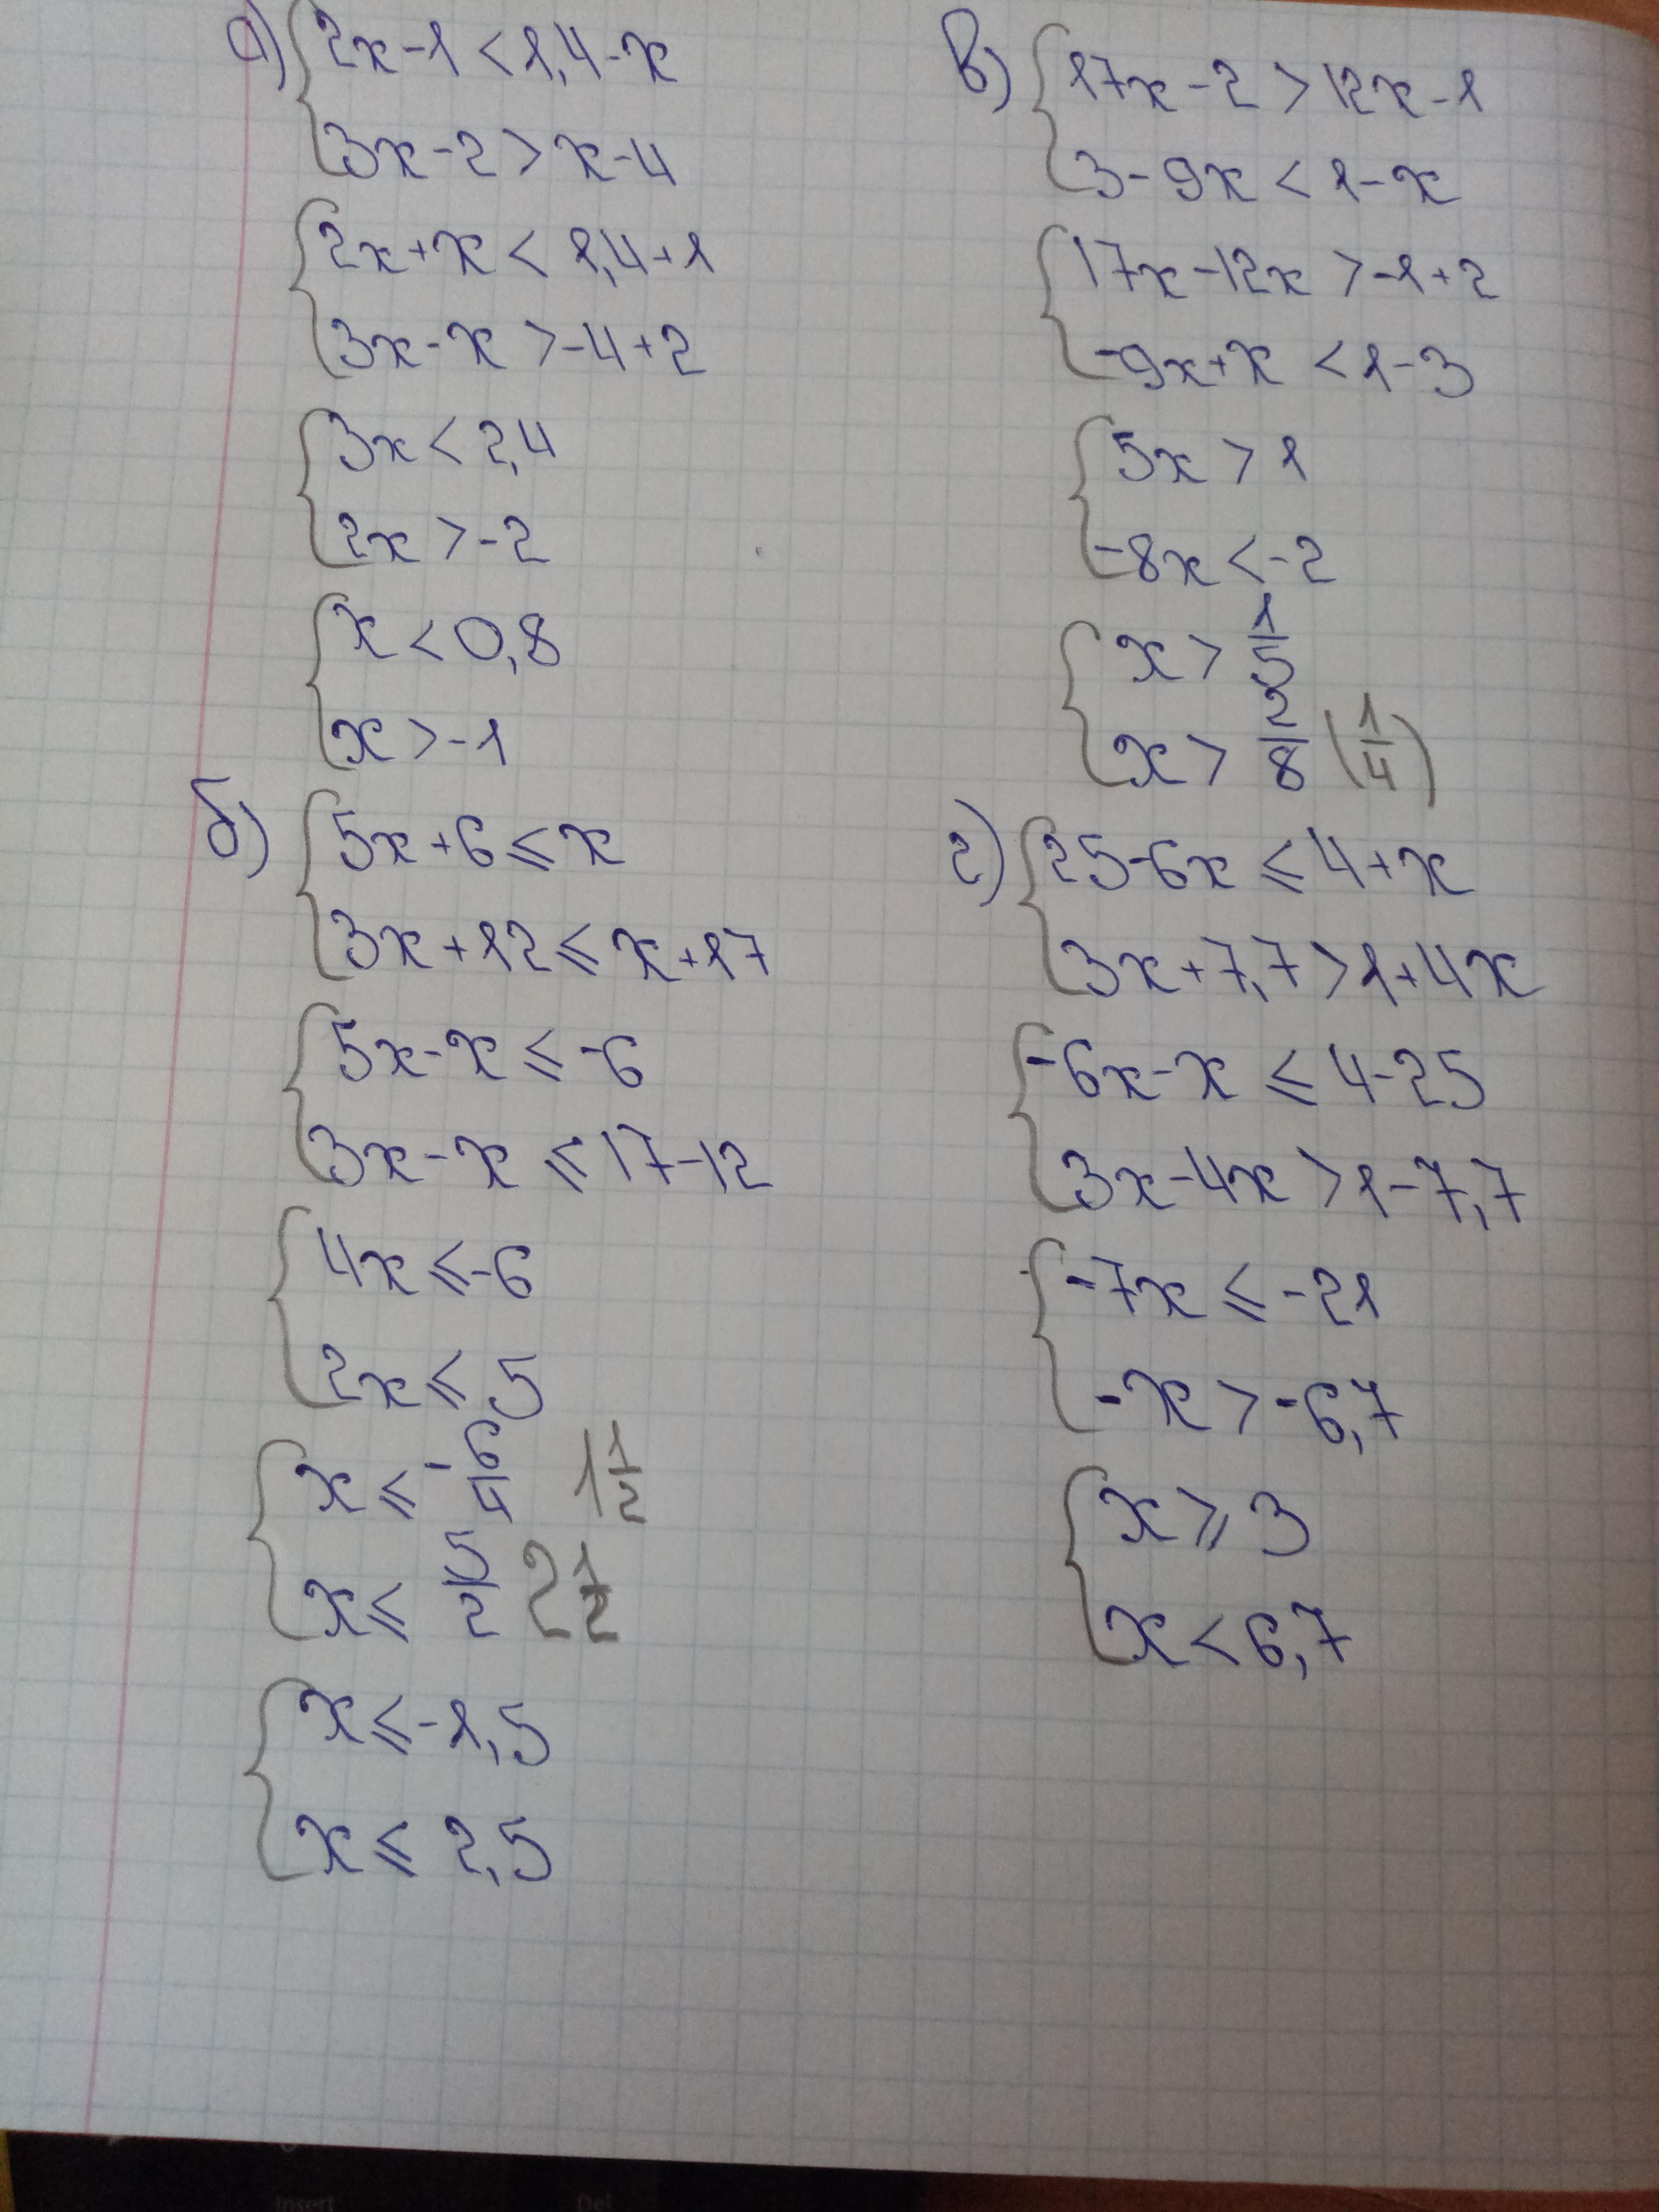 а) 2x-1<1,4-x
3x-2>x-4
2x+x<1,4+1
3x-x>-4+2
3x<2,4
2x>-2
x<0,8
x>-1
б) 5x+6≤x
3x+12≤x+17
5x-x≤-6
3x-x≤17-12
4x≤-6
2x≤5
x≤-6/4 1 1/2
x≤5/2 2 1/2
x≤-1,5
x≤2,5
в) 17x-2>12x-1
3-9x<1-x
17x-12x>-1+2
-9x+x<1-3
5x>1
-8x<-2
x>1/5
x>2/8 (1/4)
г) 25-6x≤4+x
3x+7,7>1+4x
-6x-x≤4-25
3x-4x>1-7,7
-7x≤-21
-x>-6,7
x≥3
x<6,7
Insert Del